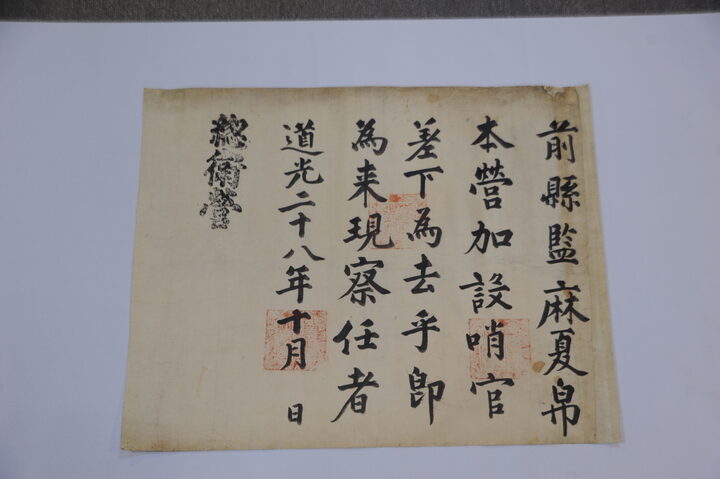 前縣監麻夏帛
本營加設哨官
差下為去乎卽
為来現察任者
道光二十八年十月 日
總衛營